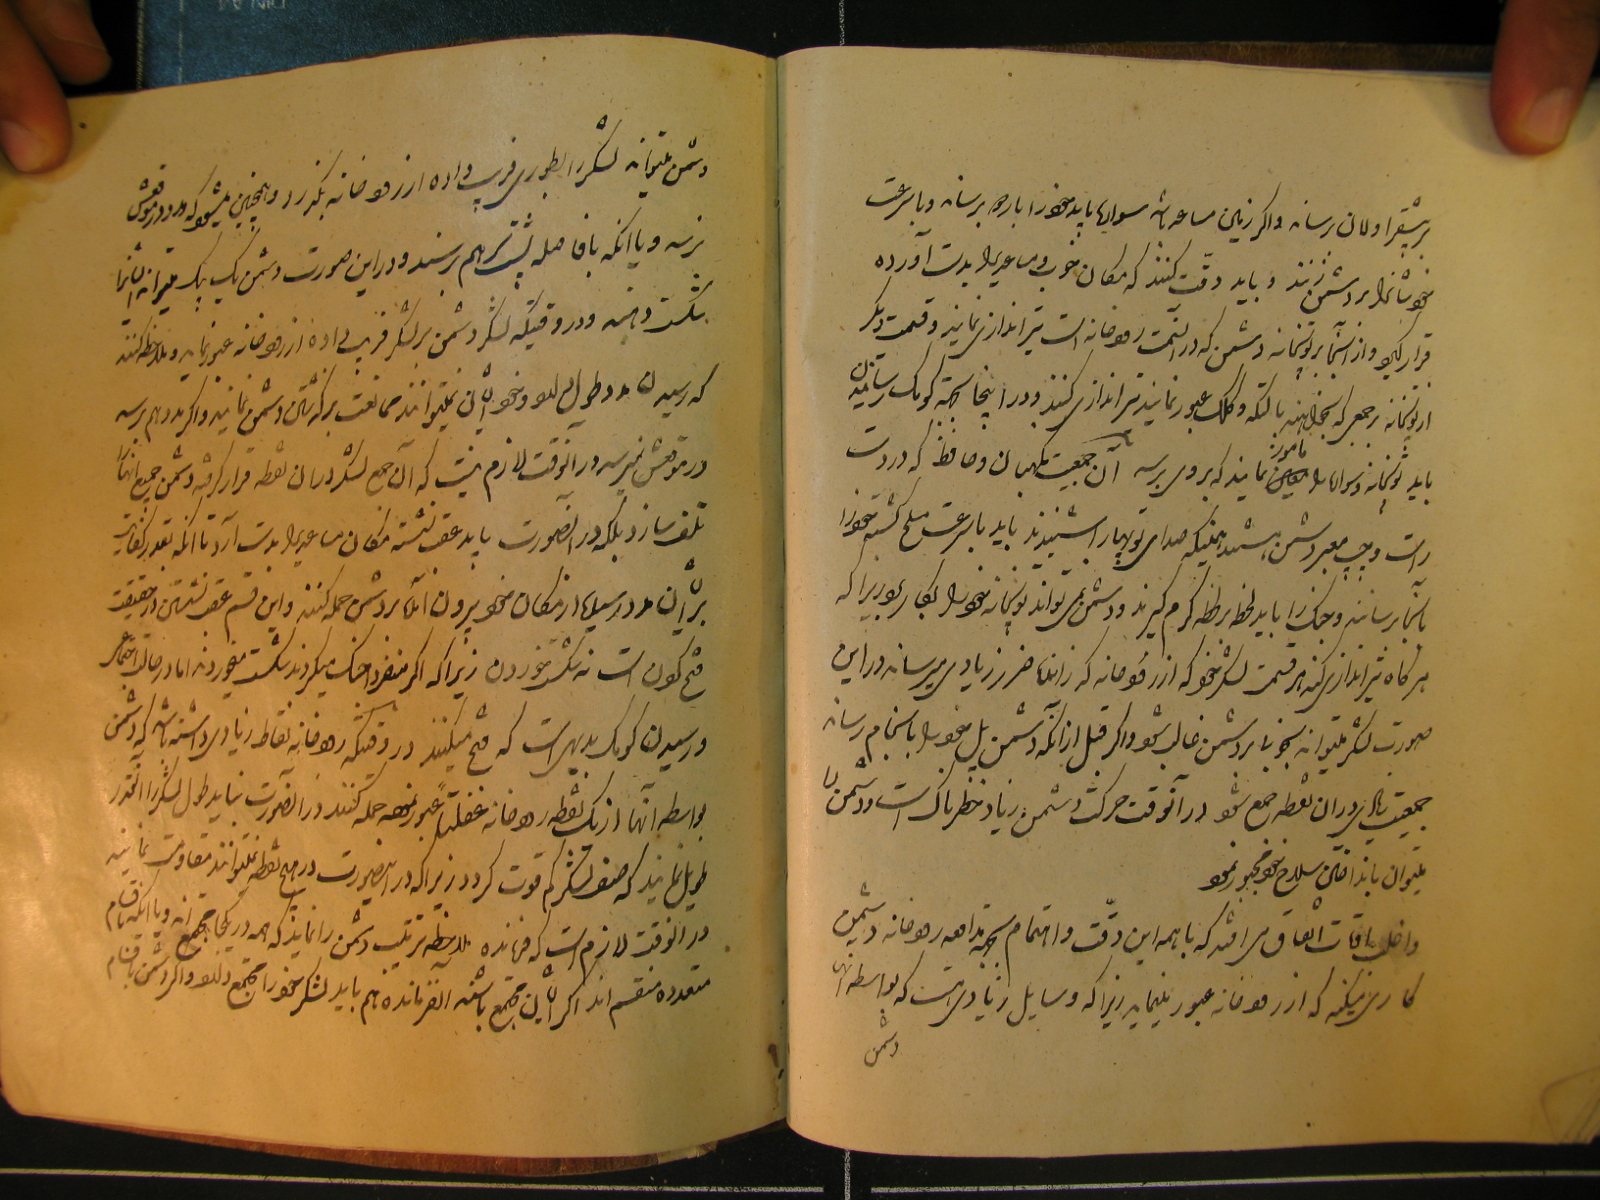 برسانند و اگر زمین مساعد باشد سواره باید خود را برساند و با سرعت
خودشان را بر دشمن زنند و باید دقت کنند که مکان خوب و مساعدی را بدست آورده
قرار گیرد و از آنجا بر توپخانه دشمن که در آنسمت رودخانه است تیراندازی نمایند و قسمت دیگر
از توپخانه بر جمعی که میخواهند با لتکه و کلک عبور نمایند تیراندازی کنند و در اینجا بجهة کومک رسانیدن
باید توپخانه و سواره را مامور نمایند که بزودی برسد آن جمعیت نگهبان و حافظ که در دست
راست و چپ معبر دشمن هستند همینکه صدای توپها را شنیدند باید با سرعت ملحق گشته خود را
بآنجا برسانند و جنگ را باید لحظه بلحظه گرم گیرند و دشمن نمی تواند توپخانه خود را بکار برد زیرا که
هر گاه تیراندازی کند بر قسمت لشکر خود که از رودخانه گذرانده ضرر زیادی میرساند در این
صورت لشکر میتواند بخوبی بر دشمن غالب شود و اگر قبل از آنکه دشمن پل خود را بانجام رساند
جمعیت زیادی در آن نقطه جمع شود در آنوقت حرکت دشمن زیاد خطرناک است و دشمن را
میتوان بانداختن سلاح خود مجبور نمود
و اغلب اوقات اتفاق می افتد که با همه این دقت و اهتمام بجهة مدافعه رودخانه دشمن
کاری میکند که از رودخانه عبور مینماید زیرا که وسایل زیادی هست که بواسطه آنها
دشمن
دشمن میتواند لشکر را بطوری فریب داده از رودخانه بگذرد و همچنین میشود که مدد در موقعش
نرسد و یا آنکه با فاصله بیشتر بهم برسند و در این صورت دشمن یک یک میتواند ایشانرا
شکست دهد و در وقتیکه لشکر دشمن بر لشکر فریب داده از رودخانه عبور نماید و ملاحظه کنند
که رسیدن مدد طول دارد و خود ایشان نمیتوانند ممانعت بر گذشتن دشمن نمایند و اگر مدد هم برسد
در موقعش نمیرسد در آنوقت لازم نیست که آن جمع لشکر در آن نقطه قرار گرفته دشمن جمیع آنها را
تلف سازد بلکه در اینصورت باید عقب نشسته مکان مساعدی را بدست آرد تا آنکه بقدر کفایت
بر ایشان مدد رسیده از مکان خود بیرون آمده بر دشمن حمله کنند و این قسم عقب نشستن در حقیقت
فتح کردن است نه شکست خوردن زیرا که اگر منفرداً جنگ میکردند شکست میخوردند اما در حالت اجتماع
و رسیدن کومک بدیهی است که فتح میکنند در وقتیکه رودخانه نقاط زیادی داشته باشد که دشمن
بواسطه آنها از یک نقطه رودخانه غفلتاً عبور نموده حمله کنند در اینصورت نباید طول لشکر را آنقدر
طویل نمایند که صف لشکر کم قوت گردد زیرا که در اینصورت در هیچ نقطه نمیتوانند مقاومت نمایند
در آنوقت لازم است که فرمانده ملاحظه ترتیب دشمن را نماید که همه در یکجا جمع اند و یا آنکه باقسام
متعدده منقسم اند اگر ایشان مجتمع باشند آنفرمانده هم باید لشکر خود را مجتمع دارد و اگر دشمن باقسام